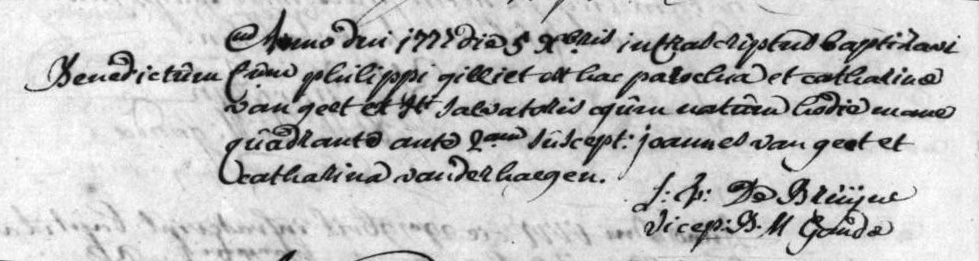 Anno dni 1775 die 5 Xbris infrascriptus baptizavi
Benedictum f. philippi gilliet ex hac parochia et catharinæ
van geet ex Sti Salvatoris natum hodie mane
quadrante ante 2am suscept: joannes van geet et
catharina vanderhaegen.
J: P: De Bruÿne
vicep: B. M Gandæ